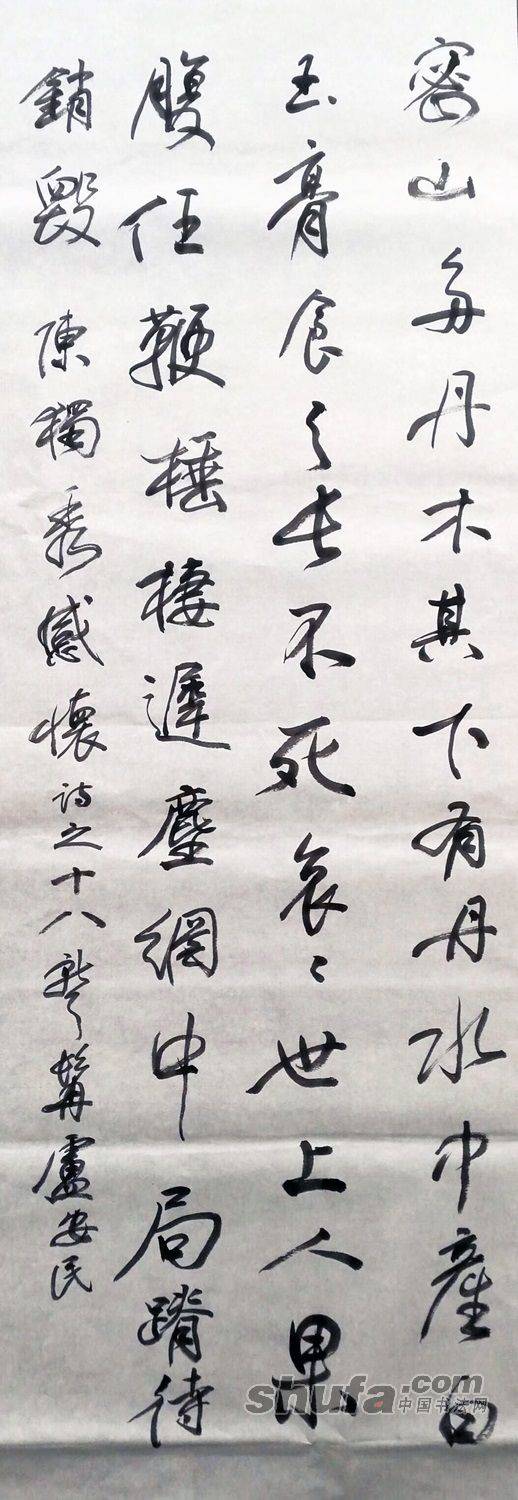 密山多丹木其下有丹水中產白
玉膏食之長不死哀〻世上人果
腹任鞭棰棲遲塵網中局蹐待
銷毀 陳獨秀感懷詩之十八 髯盧安民
shufa.com
中国书法网